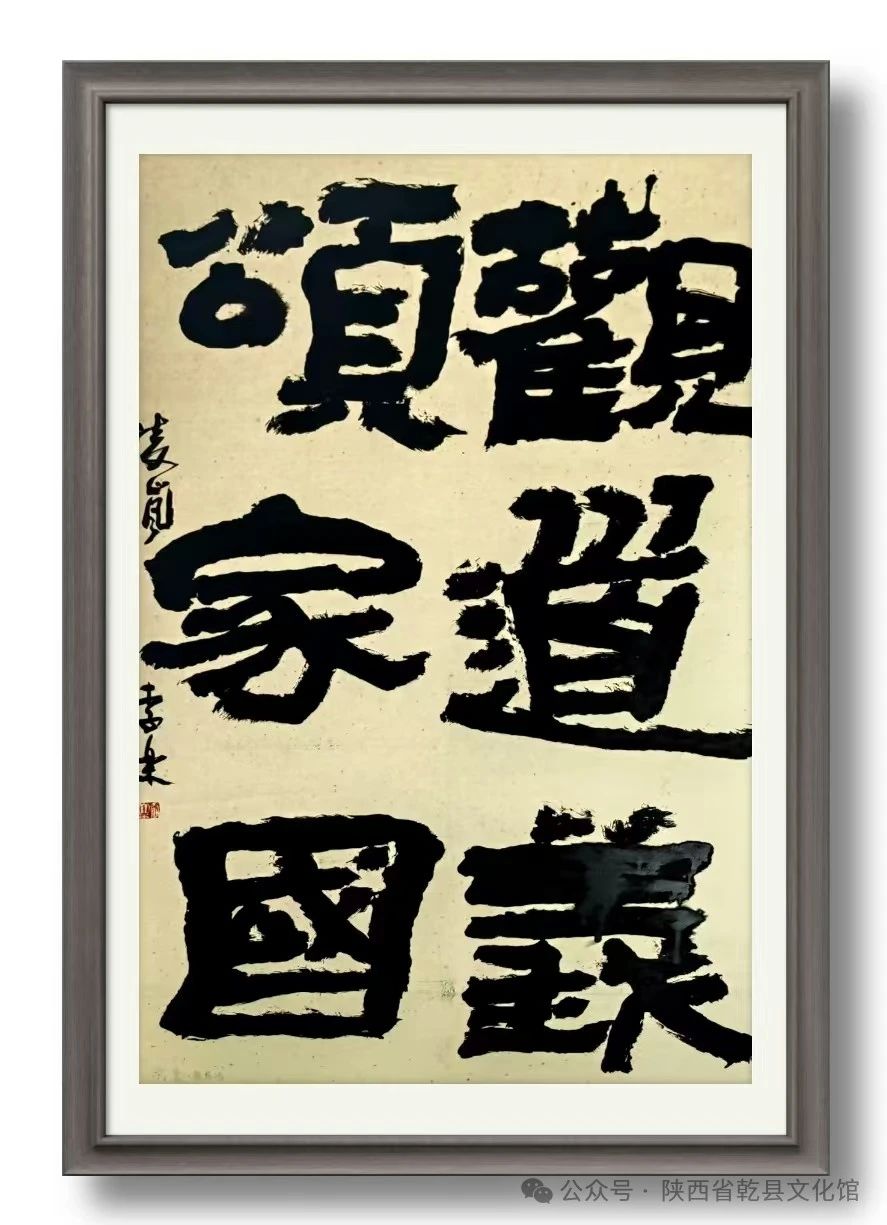 觀道義
頌家國
公众号 · 陕西省乾县文化馆